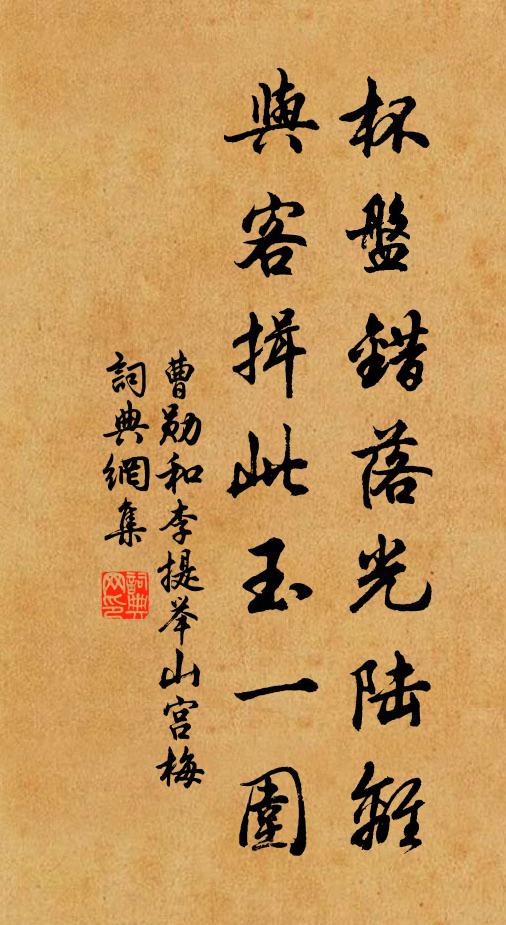 杯盤錯落光陆離
與客揖此玉一圍
曹勋和李提举山宫梅
詞典網集
詞典网印